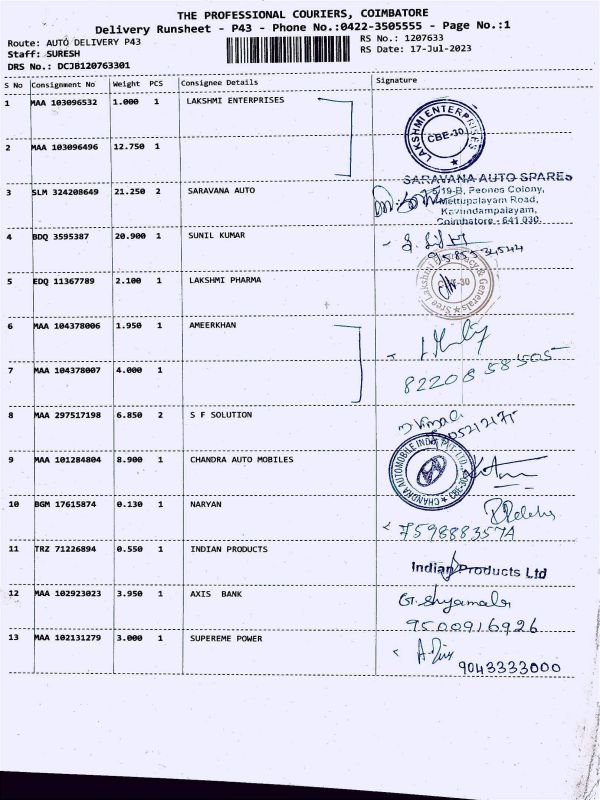 THE PROFESSIONAL COURIERS, COIMBATORE
Delivery Runsheet - P43 - Phone No.:0422-3505555 - Page No.:1
Route: AUTO DELIVERY P43
RS No.: 1207633
Staff: SURESH
RS Date: 17-Jul-2023
DRS No.: DCJB120763301
S No Consignment No Weight PCS Consignee Details Signature
1 MAA 103096532 1.000 1 LAKSHMI ENTERPRISES
LAKSHMI ENTERPRISES
CBE-30
2 MAA 103096496 12.750 1
SARAVANA AUTO SPARES
3 SLM 324208649 21.250 2 SARAVANA AUTO
519-B, Peones Colony,
Mettupalayam Road,
Kavundampalayam,
Coimbatore - 641 030.
4 BDQ 3595387 20.900 1 SUNIL KUMAR
5 EDQ 11367789 2.100 1 LAKSHMI PHARMA
Sree Lakshmi & Generals
-30
6 MAA 104378006 1.950 1 AMEERKHAN
7 MAA 104378007 4.000 1
82206 58505
8 MAA 297517198 6.850 2 S F SOLUTION
Vimal
9 MAA 101284804 8.900 1 CHANDRA AUTO MOBILES
CHANDRA AUTOMOBILE INDIA PVT LTD
10 BGM 17615874 0.130 1 NARYAN
11 TRZ 71226894 0.550 1 INDIAN PRODUCTS
Indian Products Ltd
12 MAA 102923023 3.950 1 AXIS BANK
G. Shyamala
9500916926
13 MAA 102131279 3.000 1 SUPEREME POWER
9043333000